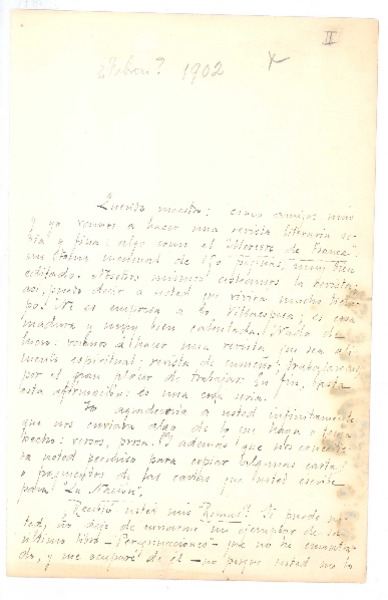 ¿Febrero? 1902
II
Querido maestro: cinco amigos míos
y yo vamos a hacer una revista literaria se-
ria y fina: algo como el "Mercure de France":
un tomo mensual de 150 páginas, muy bien
editado. Nosotros mismos costeamos la revista;
así, puedo decir a usted que vivirá mucho tiem-
po. No es empresa a lo Villaespesa; es cosa
madura y muy bien calculada. Nada de
lucro: vamos a hacer una revista que sea ali-
mento espiritual: revista de ensueño; trabajaremos
por el gran placer de trabajar. En fin, basta
esta afirmación: es una cosa seria.
Yo agradecería a usted infinitamente
que nos enviara algo de lo que haga o tenga
hecho: versos, prosa. Y además: que nos conceda
usted permiso para copiar algunas cartas
o fragmentos de las cartas que usted escribe
para "La Nación".
¿Recibió usted mis "Rimas"? Si puede us-
ted, no deje de enviarme un ejemplar de su
último libro —"Peregrinaciones"— que no he encontra-
do, y me ocuparé de él — no porque usted me lo